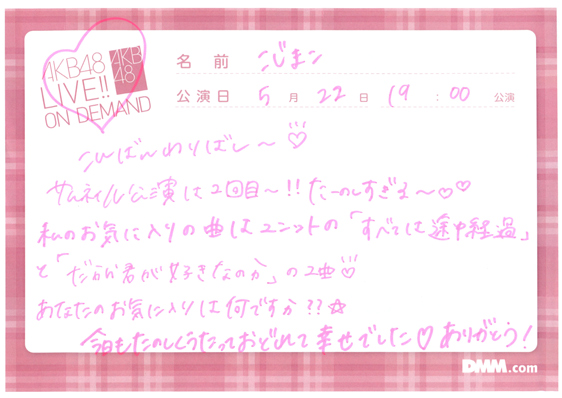 AKB48
LIVE!!
ON DEMAND
AKB
48
名前 こじまこ
公演日 5月22日 19:00 公演
こんばんわりばし〜♡
サムネイル公演は2回目〜!!たーのしすぎる〜♡♡
私のお気に入りの曲はユニットの「すべては途中経過」
と「だから君が好きなのか」の2曲♡
あなたのお気に入りは何ですか??☆
今日もたのしくうたっておどれて幸せでした♡ありがとう!
DMM.com